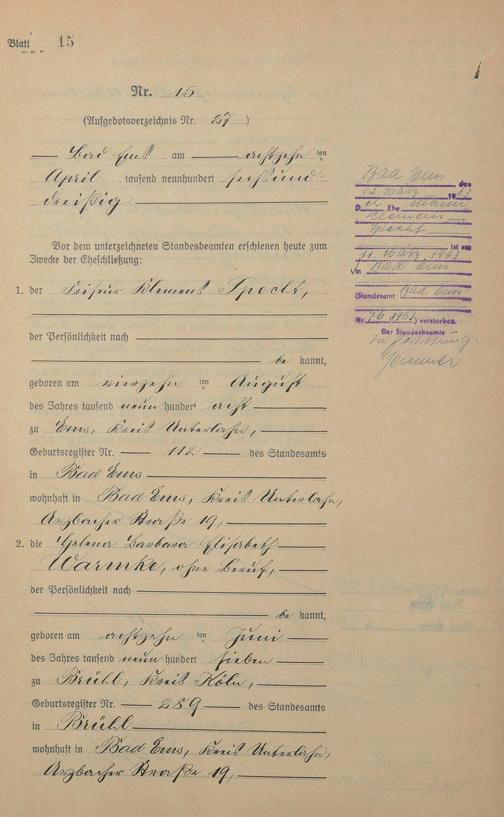 Blatt 15
Nr. 15
(Aufgebotsverzeichnis Nr. 27)
Bad Ems am achtzehn ten
April tausend neunhundert sechsund
dreißig
Vor dem unterzeichneten Standesbeamten erschienen heute zum
Zwecke der Eheschließung:
1. der Friseur Klemens Specht,
der Persönlichkeit nach
be kannt,
geboren am vierzehn ten August
des Jahres tausend neun hundert acht
zu Ems, Kreis Unterlahn,
Geburtsregister Nr. 112 des Standesamts
in Bad Ems
wohnhaft in Bad Ems, Kreis Unterlahn,
Arzbacher Straße 19,
2. die Helena Barbara Elisabeth
Warmke, ohne Beruf,
der Persönlichkeit nach
be kannt,
geboren am achtzehn ten Juni
des Jahres tausend neun hundert sieben
zu Brühl, Kreis Köln,
Geburtsregister Nr. 289 des Standesamts
in Brühl
wohnhaft in Bad Ems, Kreis Unterlahn,
Arzbacher Straße 19,
Bad Ems, den
März 1963
D er Ehe mann
Klemens
Specht
ist am
11. März 1963
in Bad Ems
(Standesamt Bad Ems
Nr. 76/1963) verstorben.
Der Standesbeamte
In Vertretung: